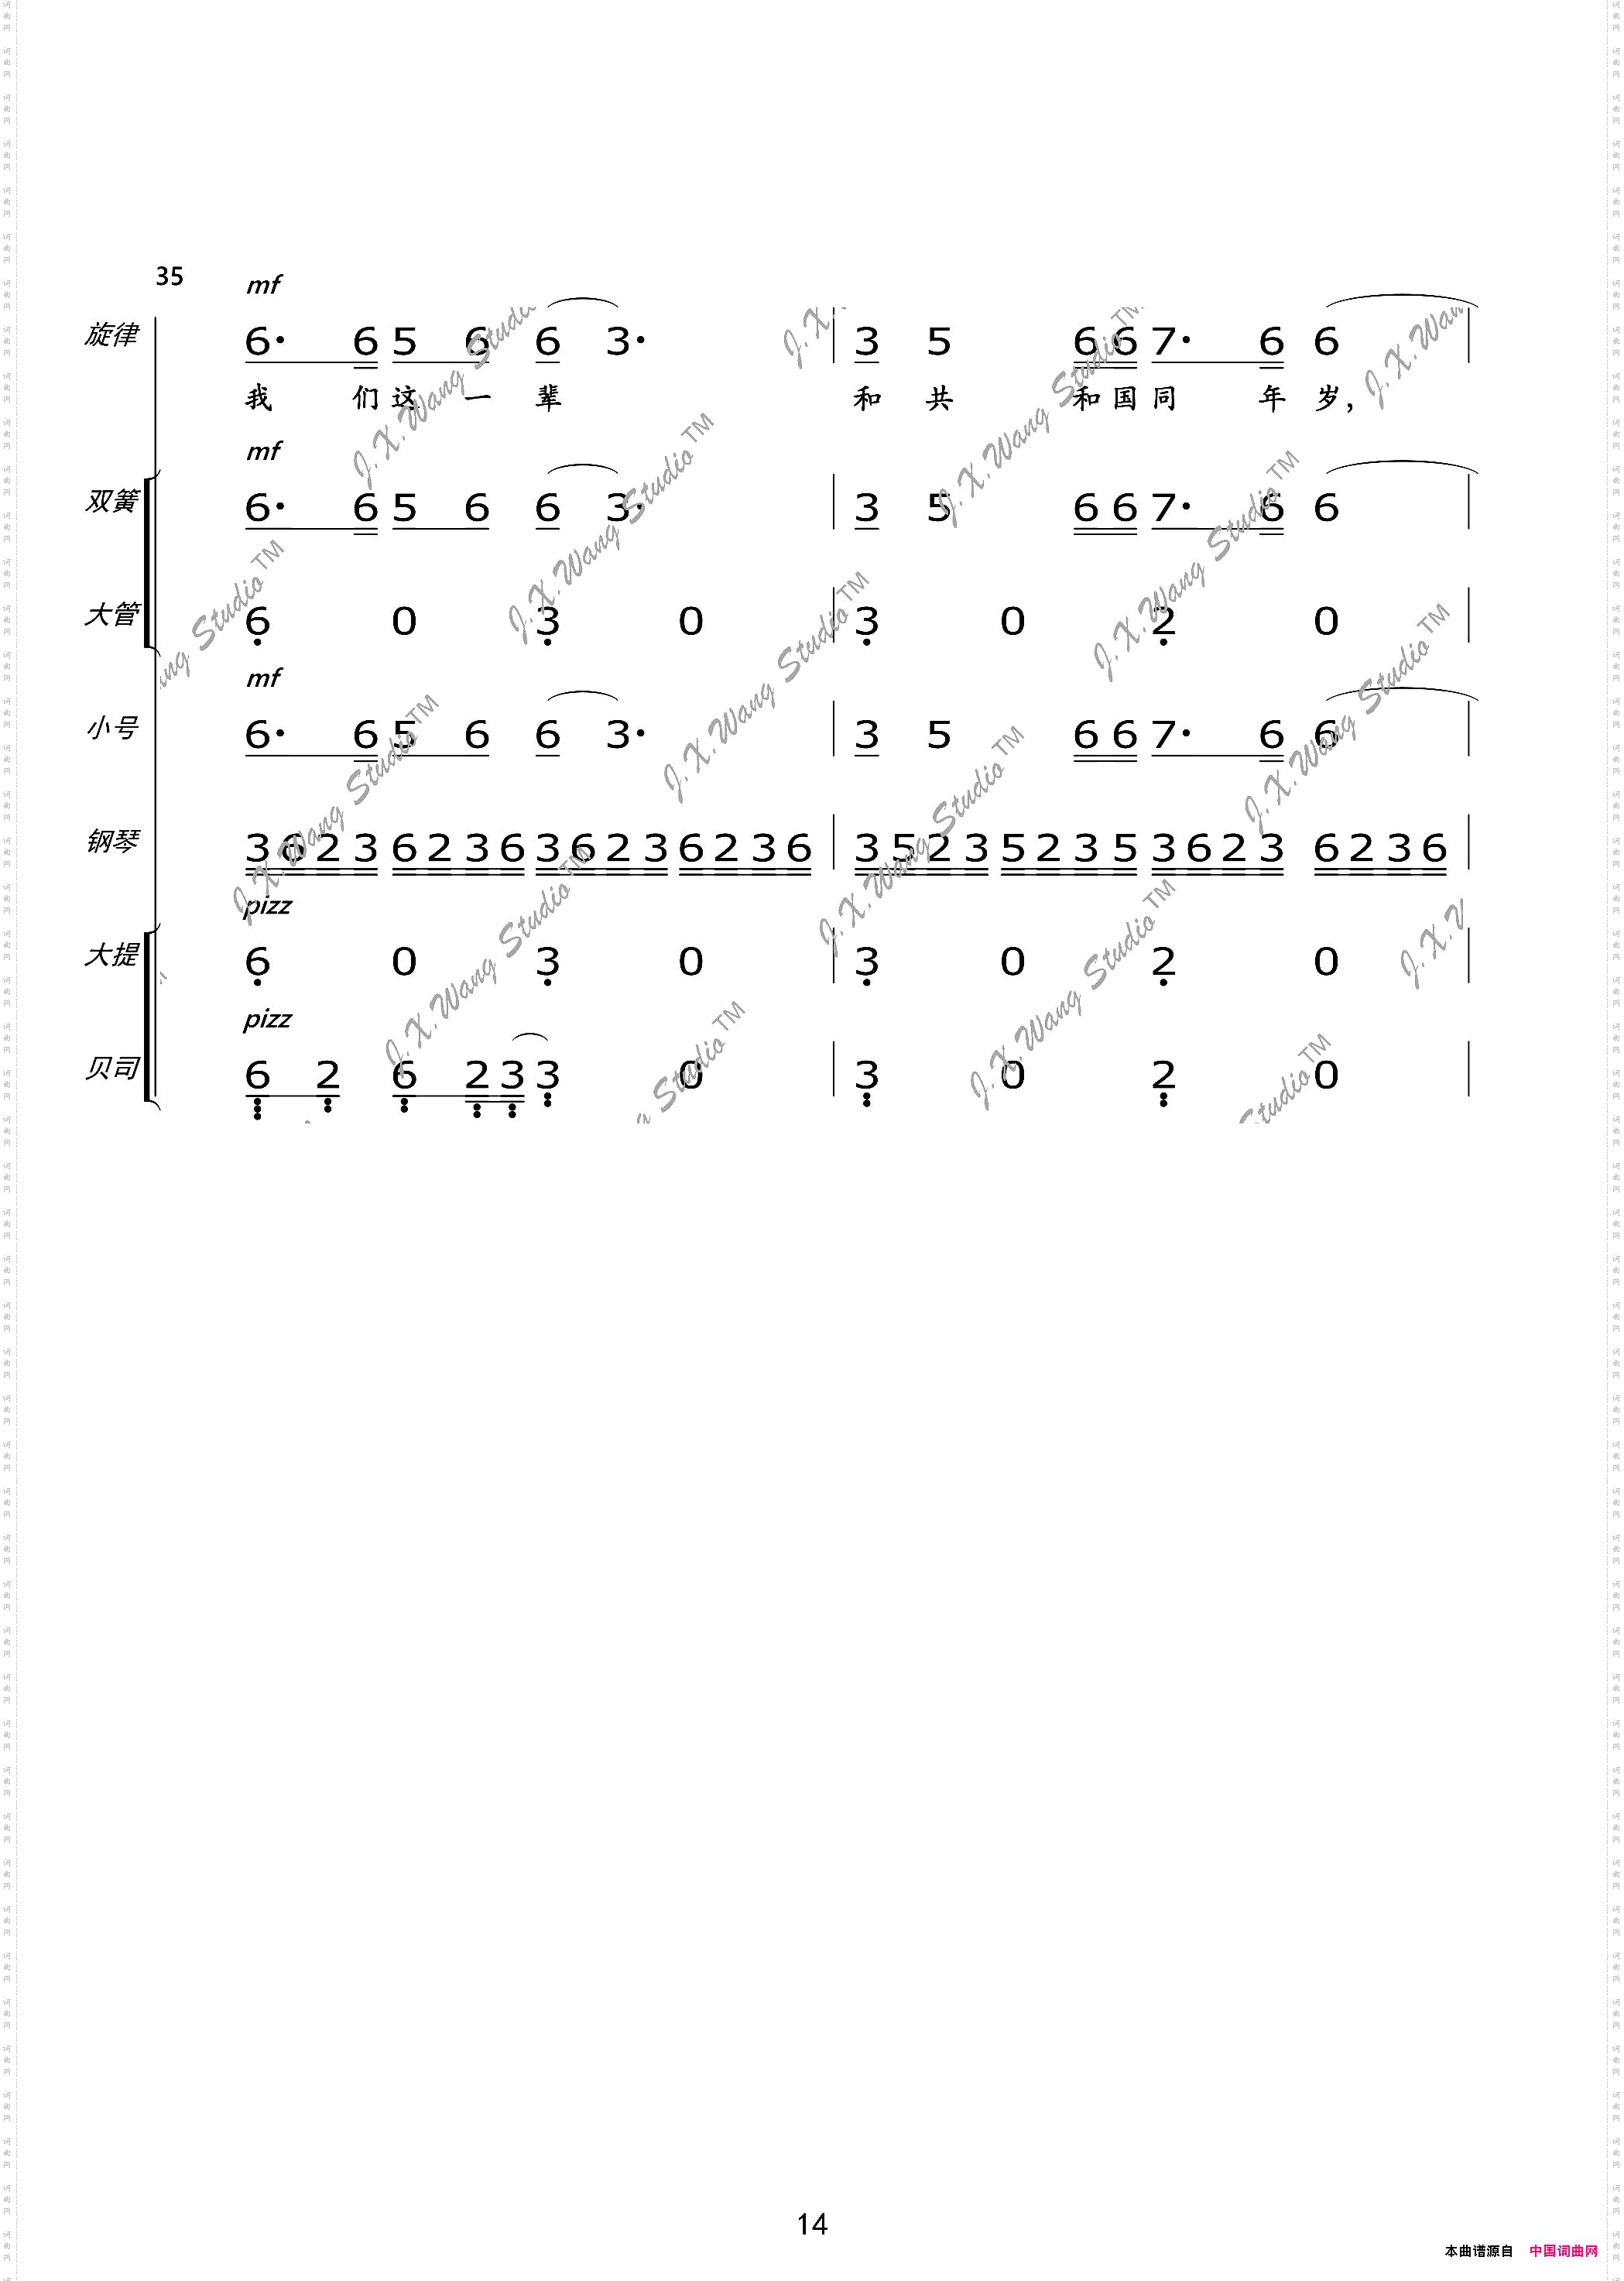 35 mf
旋律 6· 6 5 6 6 3· 3 5 6 6 7· 6 6
我 们 这 一 辈 和 共 和 国 同 年 岁，
mf
双簧 6· 6 5 6 6 3· 3 5 6 6 7· 6 6
大管 6 0 3 0 3 0 2 0
mf
小号 6· 6 5 6 6 3· 3 5 6 6 7· 6 6
钢琴 3 6 2 3 6 2 3 6 3 6 2 3 6 2 3 6 3 5 2 3 5 2 3 5 3 6 2 3 6 2 3 6
pizz
大提 6 0 3 0 3 0 2 0
pizz
贝司 6 2 6 2 3 3 0 3 0 2 0
J.X.Wang Studio™
14
本曲谱源自 中国词曲网